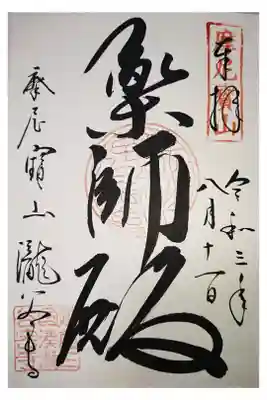 奉拝
令和三年
八月十一日
薬師殿
摩尼寳山瀧谷寺